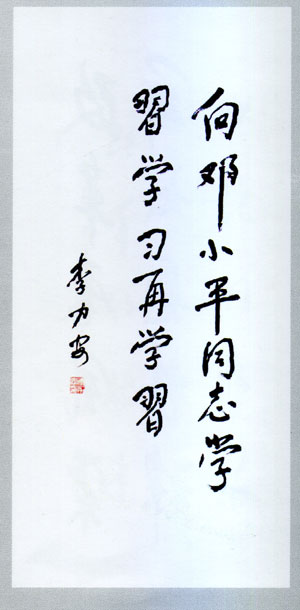 向邓小平同志学
習学习再学習
李力安